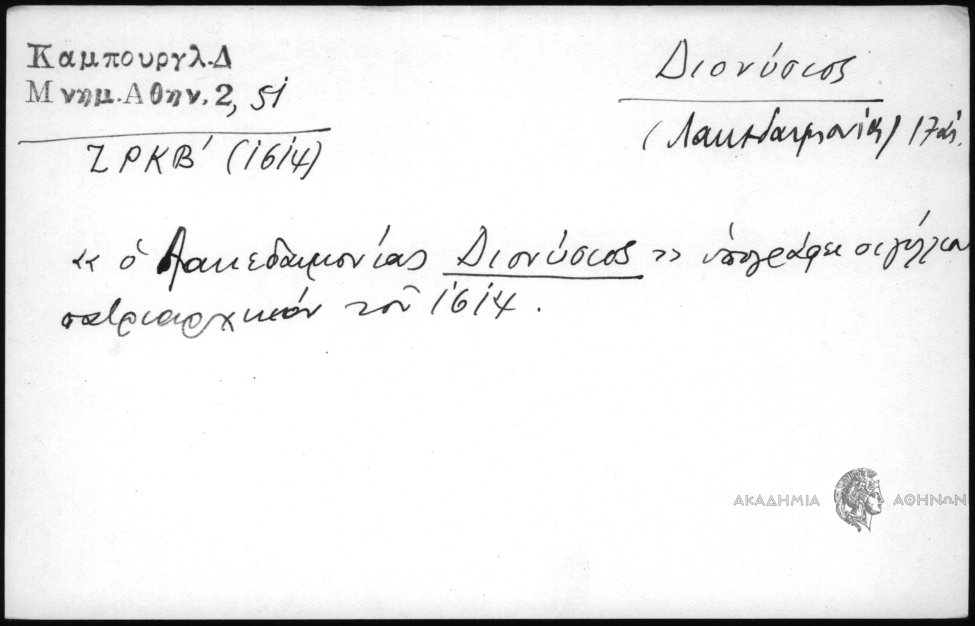 Καμπουργλ.Δ
Μνημ.Αθην.2, 51
ΖΡΚΒ' (1614)
Διονύσιος
(Λακεδαιμονίας) 17ος αἰ.
« ὁ Λακεδαιμονίας Διονύσιος » ὑπογράφει σιγίλλιον
πατριαρχικόν τοῦ 1614.
ΑΚΑΔΗΜΙΑ ΑΘΗΝΩΝ